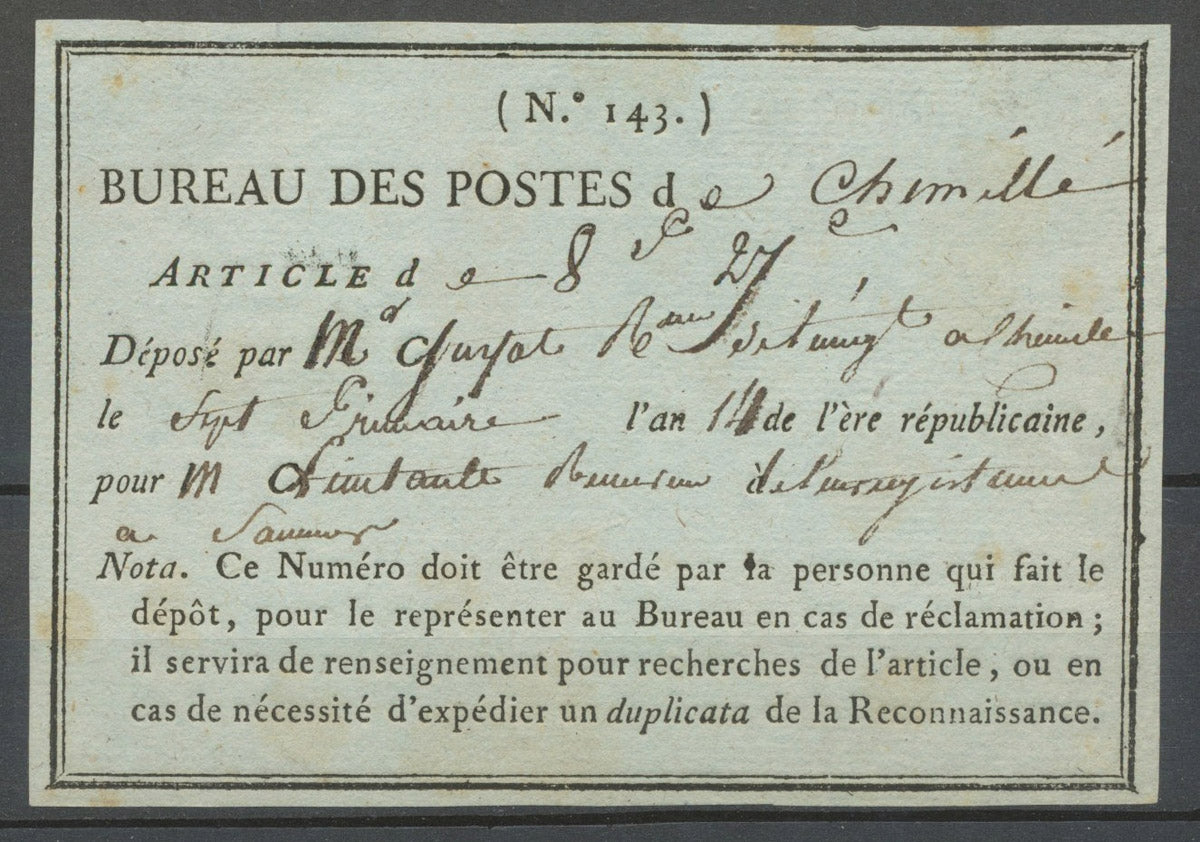 ( N.º 143. )
BUREAU DES POSTES de Chemillé
ARTICLE de 8 f 27 c
Déposé par Mr a Chemille
le Sept Frimaire l'an 14 de l'ère républicaine,
pour M Receveur de l'enregistrement
a Saumur
Nota. Ce Numéro doit être gardé par la personne qui fait le
dépôt, pour le représenter au Bureau en cas de réclamation ;
il servira de renseignement pour recherches de l'article, ou en
cas de nécessité d'expédier un duplicata de la Reconnaissance.